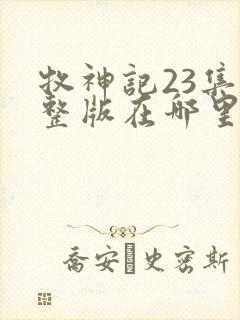 牧神記23集
整版在哪里
喬安·史密斯